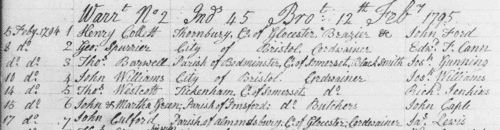 Warrt. No 2 Ind 45 Brot. 12th Feby 1795
5 Feby. 1794 1 Henry Collett Thornbury, Co. of Glocester Brazier &c John Ford
8 do. 2 Geo: Spurrier City of Bristol, Cordwainer Edwd. T. Cann
do do. 3 Thos. Barwell Parish of Bedminster, C. of Somerset, Black Smith Jos: Gunning
10 do. 4 John Williams City of Bristol. Cordwainer Jos: Williams
14 do. 5 Thos. Westcott Tickenham, C. of Somerset do. Richd. Jenkins
16 do. 6 John & Martha Green, Parish of do. Butchers John Caple
17 do. 7 John Parish of almondsbury, C. of Glocester, Cordwainer Jas. Lewis